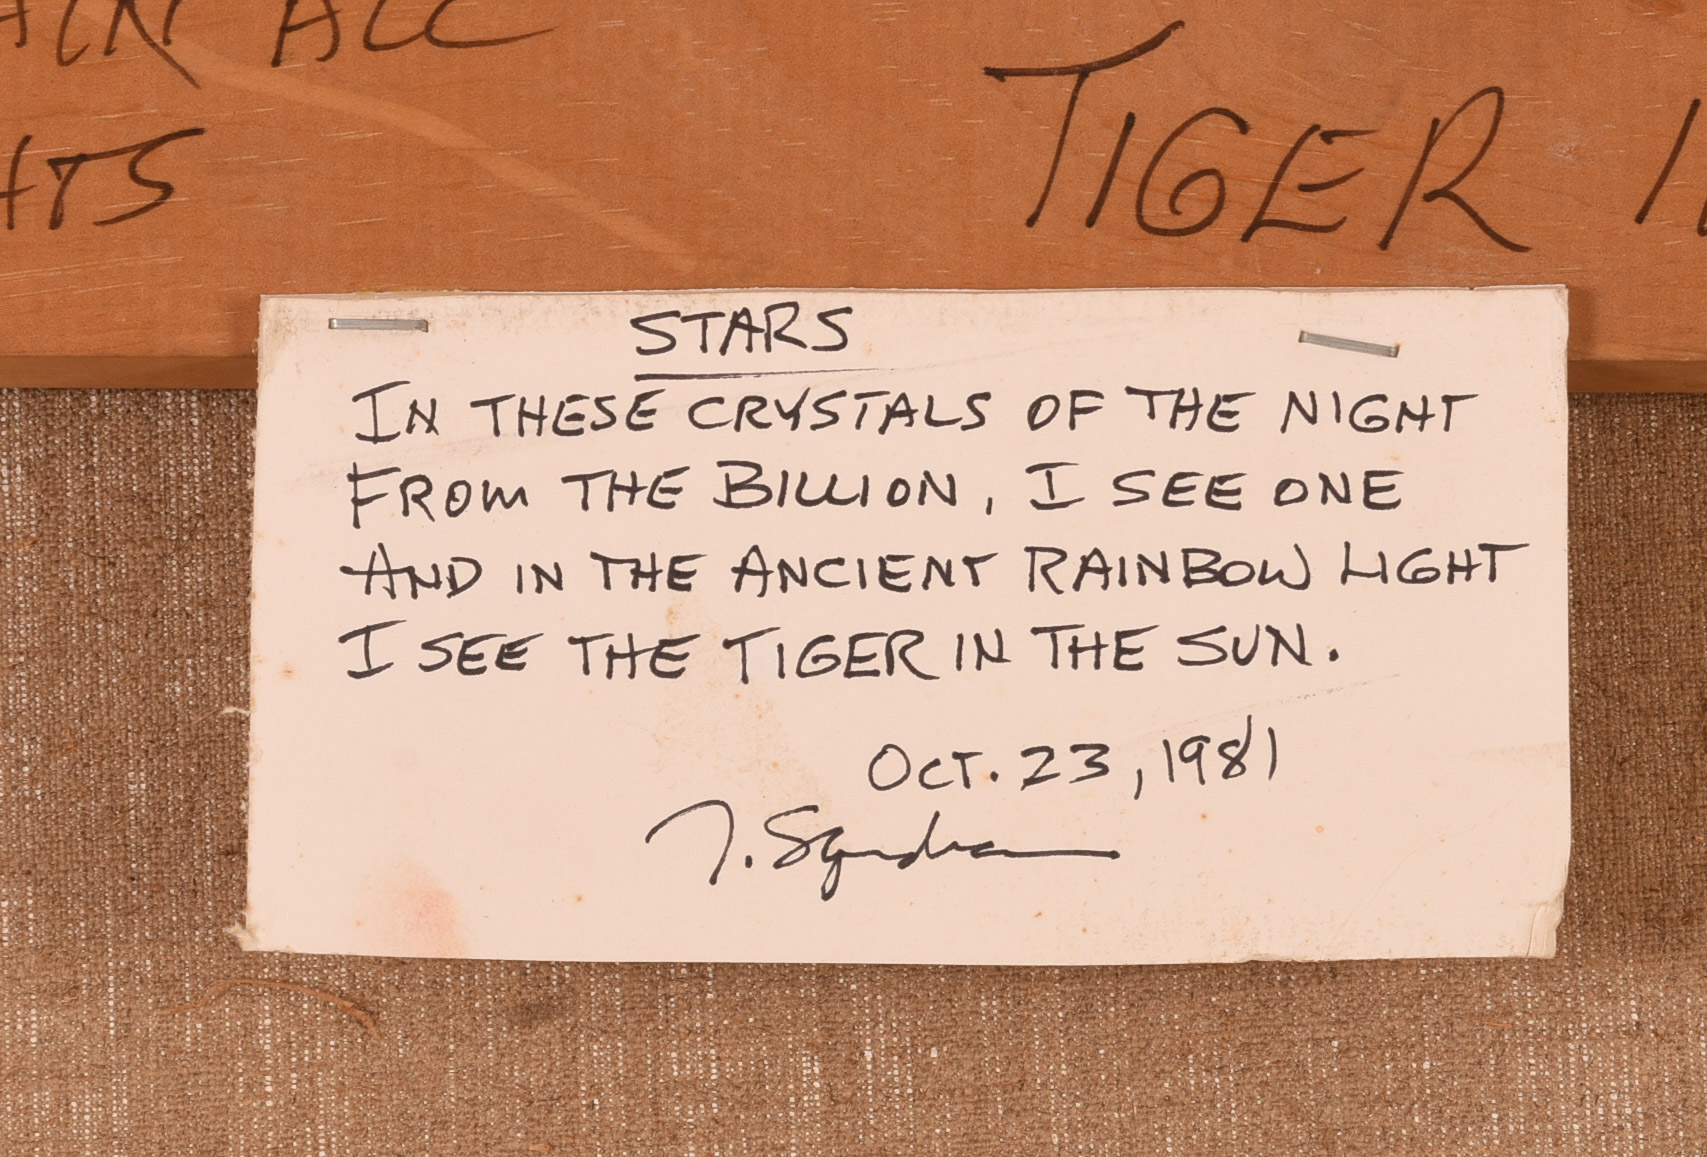 ALL
TIGER
STARS
IN THESE CRYSTALS OF THE NIGHT
FROM THE BILLION, I SEE ONE
AND IN THE ANCIENT RAINBOW LIGHT
I SEE THE TIGER IN THE SUN.
OCT. 23, 1981